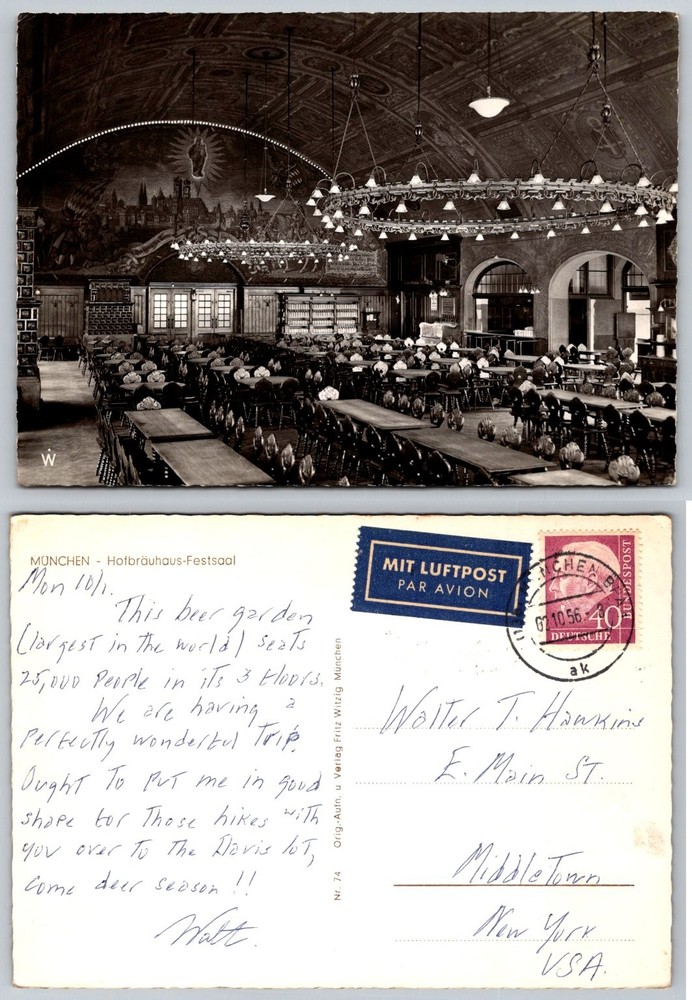 W
MÜNCHEN - Hofbräuhaus-Festsaal
Mon 10/1.
This beer garden
(largest in the world) seats
25,000 people in its 3 floors.
We are having a
perfectly wonderful Trip.
Ought To put me in good
shape for Those hikes with
you over To The Davis lot,
come deer season !!
Walt.
Nr. 74 Orig.-Aufn. u Verlag Fritz Witzig München
MIT LUFTPOST
PAR AVION
40
DEUTSCHE
BUNDESPOST
MÜNCHEN
02.10.56
ak
Walter T. Hawkins
E. Main St.
Middletown
New York
USA.